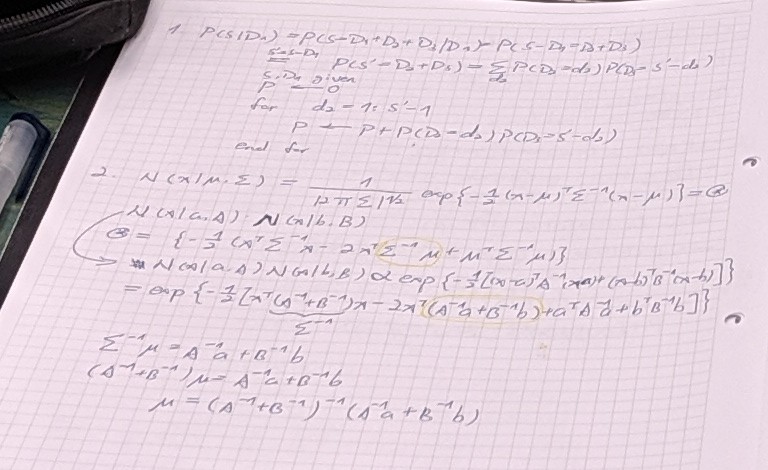 1. P(S|D₁) = P(S-D₁+D₂+D₃|D₁) = P(S-D₁=D₂+D₃)
S'=S-D₁
= P(S'=D₂+D₃) = Σ_d₂ P(D₂=d₂)P(D₃=S'-d₂)
S, D₁ given
P ← 0
for d₂ = 1: S'-1
P ← P + P(D₂=d₂)P(D₃=S'-d₂)
end for
2. N(x|μ,Σ) = 1/|2πΣ|^1/2 exp{-½(x-μ)ᵀΣ⁻¹(x-μ)} = ⊗
N(x|a,A)·N(x|b,B)
⊗ = {-½(xᵀΣ⁻¹x - 2xᵀΣ⁻¹μ + μᵀΣ⁻¹μ)}
N(x|a,A)N(x|b,B) ∝ exp{-½[(x-a)ᵀA⁻¹(x-a)+(x-b)ᵀB⁻¹(x-b)]}
= exp{-½[xᵀ(A⁻¹+B⁻¹)x - 2xᵀ(A⁻¹a+B⁻¹b)+aᵀA⁻¹a+bᵀB⁻¹b]}
Σ⁻¹
Σ⁻¹μ = A⁻¹a + B⁻¹b
(A⁻¹+B⁻¹)μ = A⁻¹a + B⁻¹b
μ = (A⁻¹+B⁻¹)⁻¹(A⁻¹a+B⁻¹b)